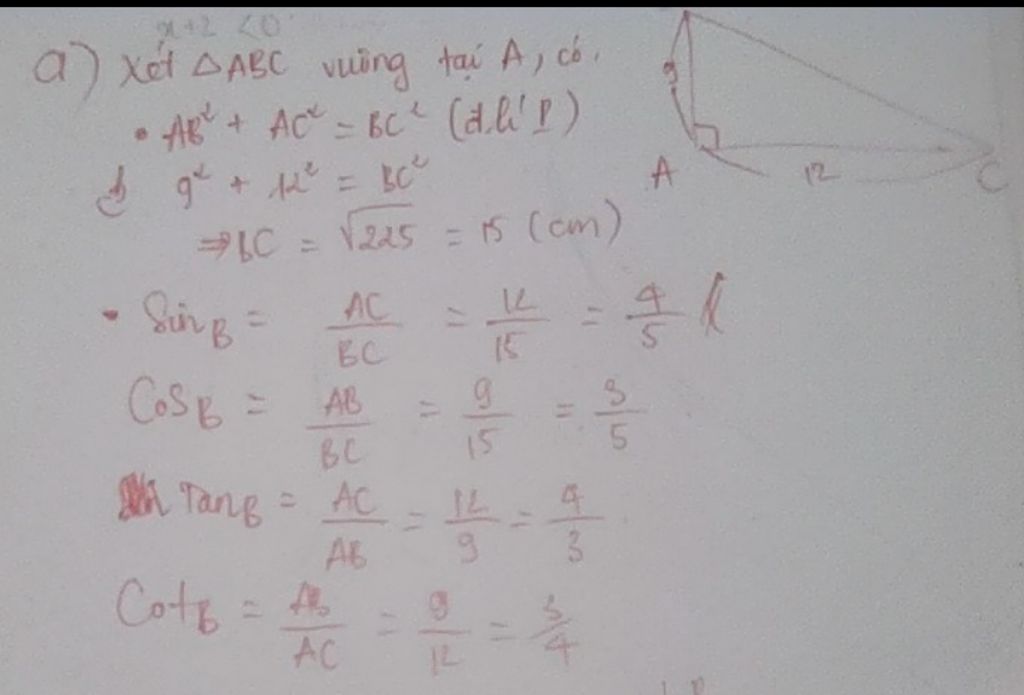 x+2 <0
a) Xét △ABC vuông tại A, có.
• AB² + AC² = BC² (đ.lí P)
9² + 12² = BC²
⇒BC = √225 = 15 (cm)
• Sin B = AC/BC = 12/15 = 4/5
Cos B = AB/BC = 9/15 = 3/5
Tan B = AC/AB = 12/9 = 4/3
Cot B = AB/AC = 9/12 = 3/4
9
A 12 C